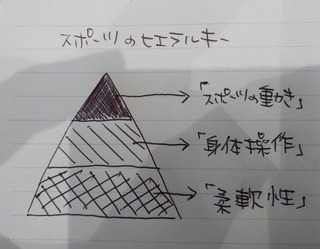 スポーツのヒエラルキー
「スポーツの動き」
「身体操作」
「柔軟性」